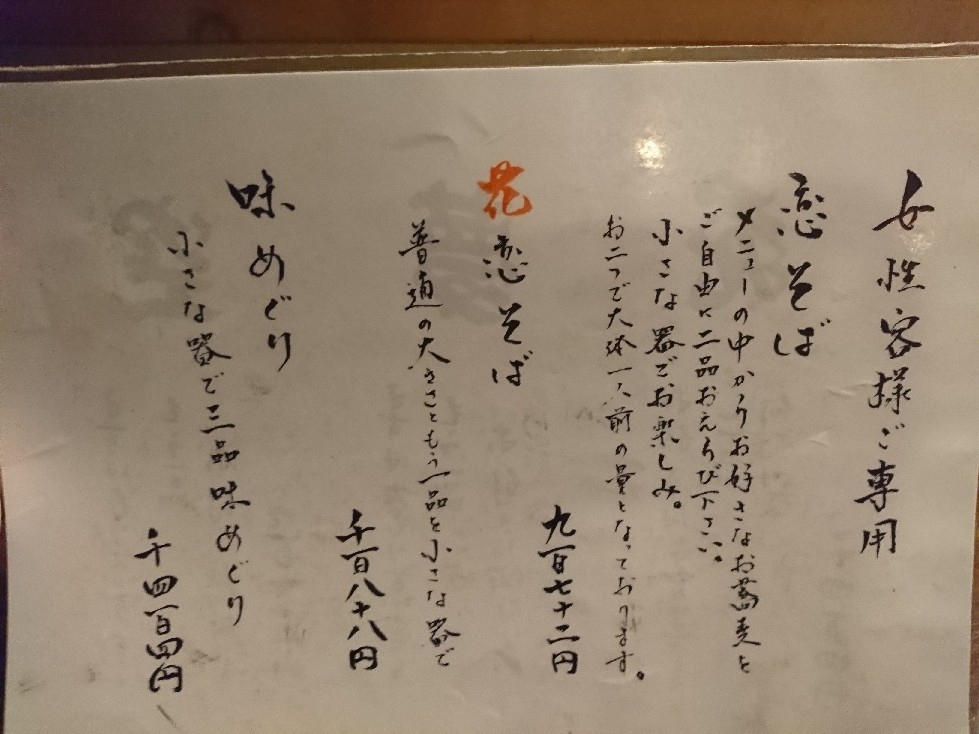 女性客様ご専用
恋そば
メニューの中からお好きなお蕎麦を
ご自由に二品おえらび下さい。
小さな器でお楽しみ。
お二つで大体一人前の量となっております。
九百七十二円
花恋そば
普通の大きさともう一品を小さな器で
千百八十八円
味めぐり
小さな器で三品味めぐり
千四百四円